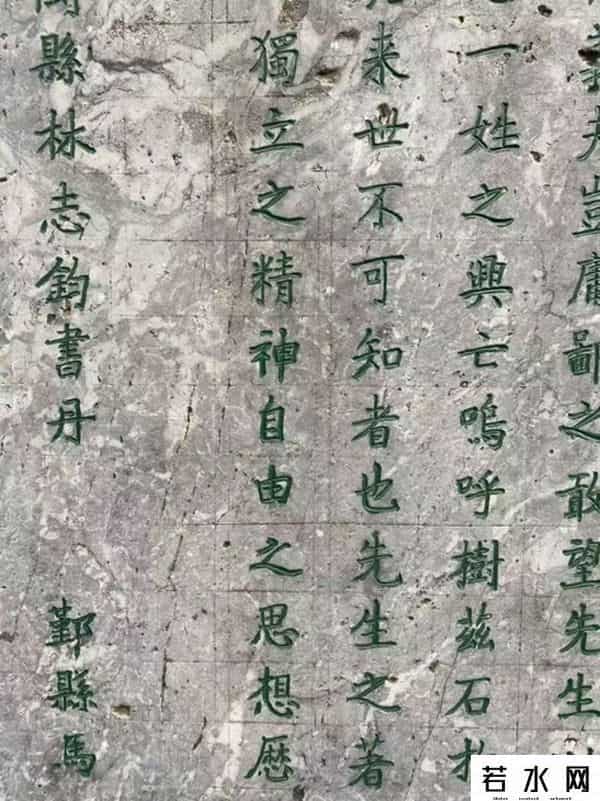 義夫豈庸鄙之敢望先生
一姓之興亡嗚呼樹茲石
来世不可知者也先生之著
獨立之精神自由之思想歷
縣林志鈞書丹 鄞縣馬
若水网